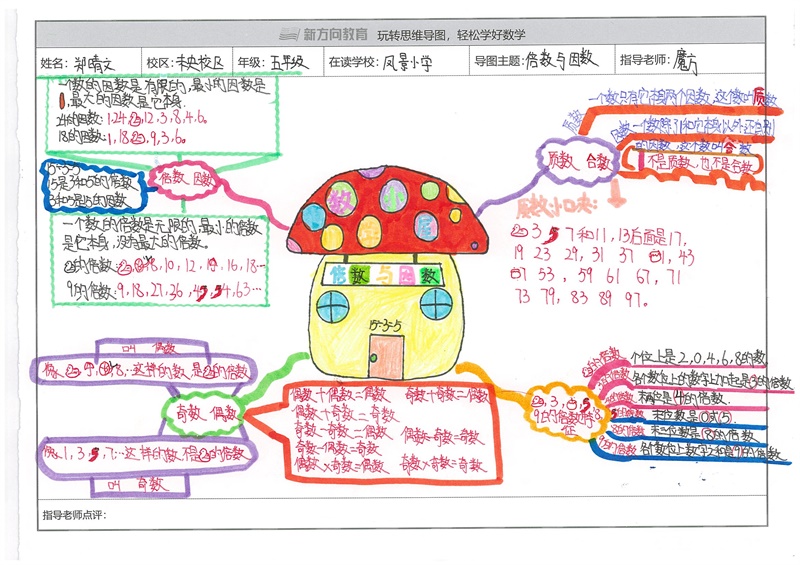 新方向教育 玩转思维导图，轻松学好数学
姓名: 郑晴文 校区: 未央校区 年级: 五年级 在读学校: 凤景小学 导图主题: 倍数与因数 指导老师: 魔方
一个数的因数是有限的,最小的因数是
1,最大的因数是它本身.
24的因数:1,24,2,12,3,8,4,6。
18的因数:1,18,2,9,3,6。
倍数 因数
15÷3=5
15是3和5的倍数
3和5是15的因数
一个数的倍数是无限的,最小的倍数
是它本身,没有最大的倍数。
2的倍数:
8,10,12,
16,18…
9的倍数:9,18,27,36,45,54,63…
质数
一个数只有它本身两个因数,这个数叫质数
质数 合数
的因数,这个数叫合数
1不是质数,也不是合数
质数小口决:
2 3 5 7和11,13后面是17,
19 23 29 31 37 41,43
47 53, 59 61 67, 71
73 79, 83 89 97。
数学乐园
倍数与因数
15÷3=5
偶数
这样的数,是2的倍数
奇数 偶数
1,3,5,7…这样的数,不是2的倍数
奇数
偶数+偶数=偶数 奇数+奇数=偶数
偶数+奇数=奇数
奇数-奇数=偶数 偶数-奇数=奇数
奇数-偶数=奇数
偶数×奇数=偶数 奇数×奇数=奇数
9的倍数特
征
2的倍数 个位上是2,0,4,6,8的数
3的倍数 各个数位上的数字上加起来是3的倍数
末两位是4的倍数.
末位数是0或5.
8的倍数 末三位数是8的倍数
9的倍数 各个数位上数字之和是9的倍数
指导老师点评: